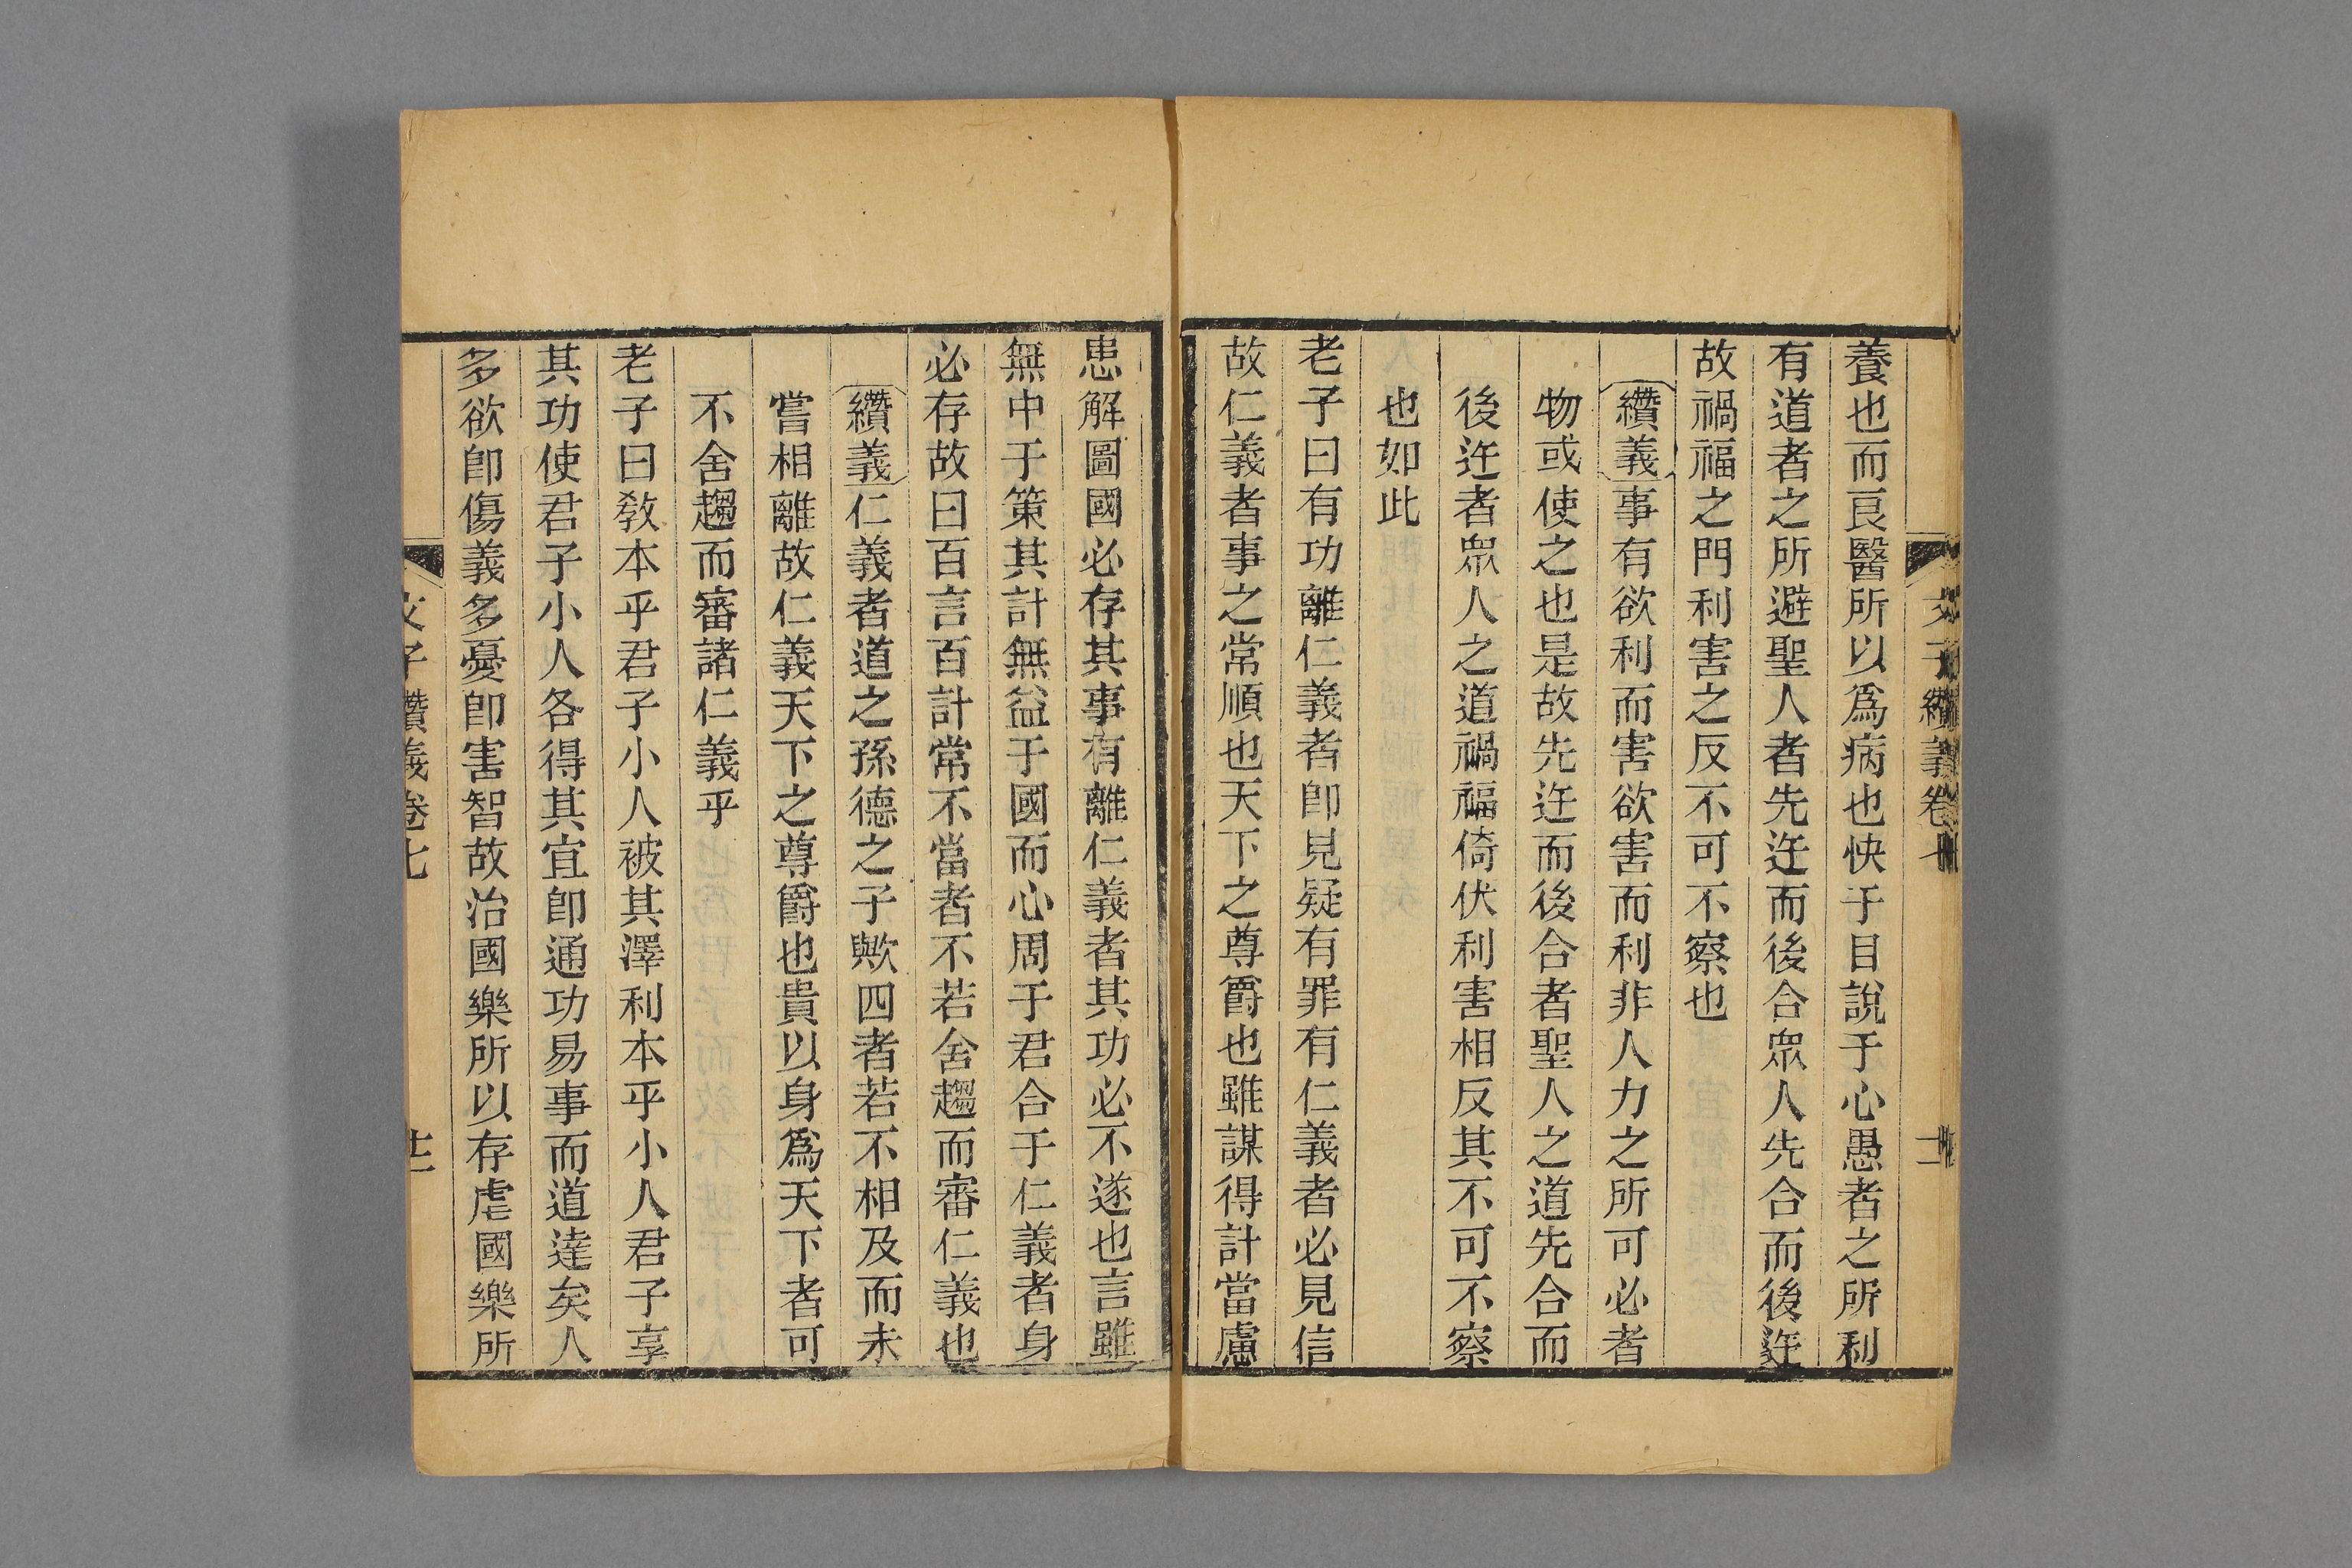 文子纘義卷七
養也而良醫所以爲病也快于目說于心愚者之所利
有道者之所避聖人者先迕而後合眾人先合而後迕
故禍福之門利害之反不可不察也
纘義事有欲利而害欲害而利非人力之所可必者
物或使之也是故先迕而後合者聖人之道先合而
後迕者眾人之道禍福倚伏利害相反其不可不察
也如此
老子曰有功離仁義者卽見疑有罪有仁義者必見信
故仁義者事之常順也天下之尊爵也雖謀得計當慮
患解圖國必存其事有離仁義者其功必不遂也言雖
無中于策其計無益于國而心周于君合于仁義者身
必存故曰百言百計常不當者不若舍趨而審仁義也
纘義仁義者道之孫德之子歟四者若不相及而未
嘗相離故仁義天下之尊爵也貴以身爲天下者可
不舍趨而審諸仁義乎
老子曰敎本乎君子小人被其澤利本乎小人君子享
其功使君子小人各得其宜卽通功易事而道達矣人
多欲卽傷義多憂卽害智故治國樂所以存虐國樂所
文子纘義卷七